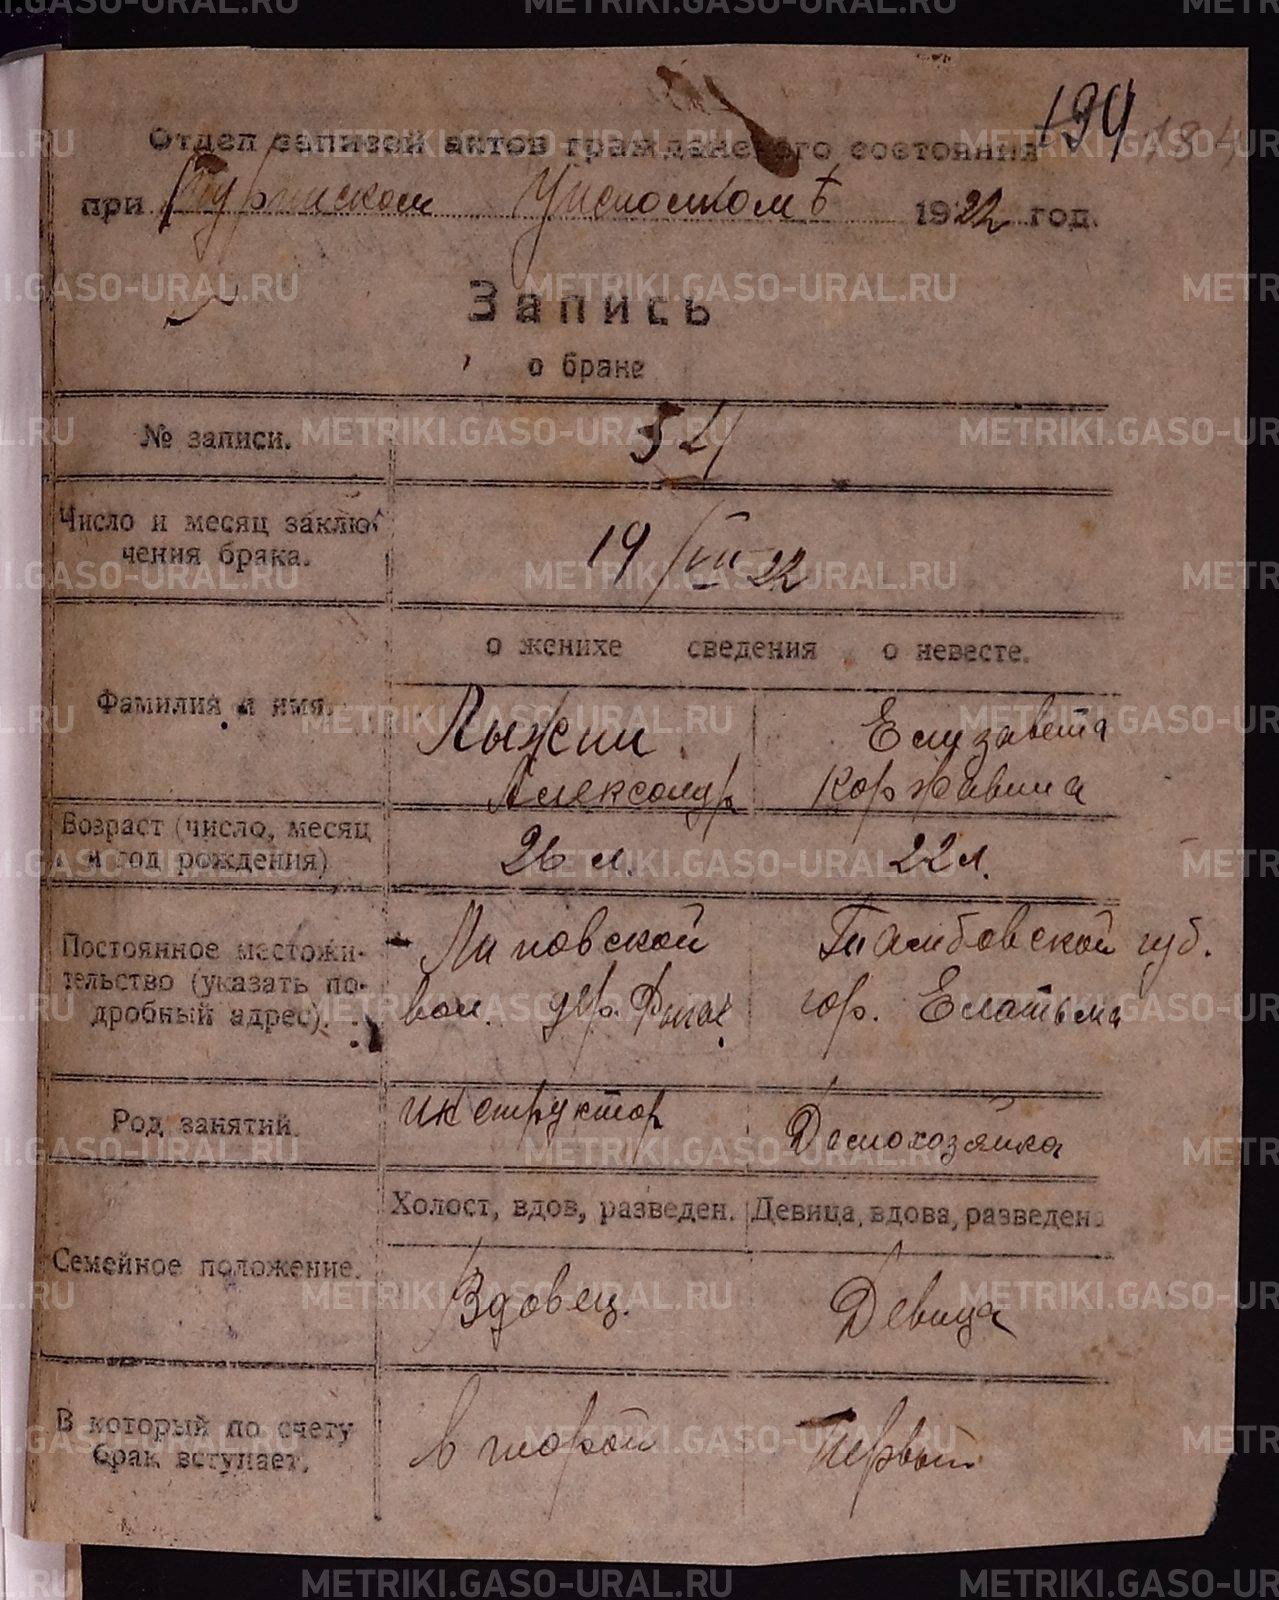 METRIKI.GASO-URAL.RU
194 184
Отдел записей актов гражданского состояния
при Туринском Исполкомѣ 1922 год.
Запись
о браке
№ записи.
Число и месяц заключения брака.
19/VIII 22
о женихе сведения о невесте.
Фамилия и имя.
Лыжин Елизавета
Александр Коржавина
Возраст (число, месяц
и год рождения)
26 л. 22 л.
Постоянное местожи-
тельство (указать по-
дробный адрес).
Липовской Тамбовской губ.
вол. дер. гор. Елатьма
Род занятий.
инструктор Домохозяйка
Холост, вдов, разведен. Девица, вдова, разведена
Семейное положение.
Вдовец. Девица
В который по счету
брак вступает.
второй Первый